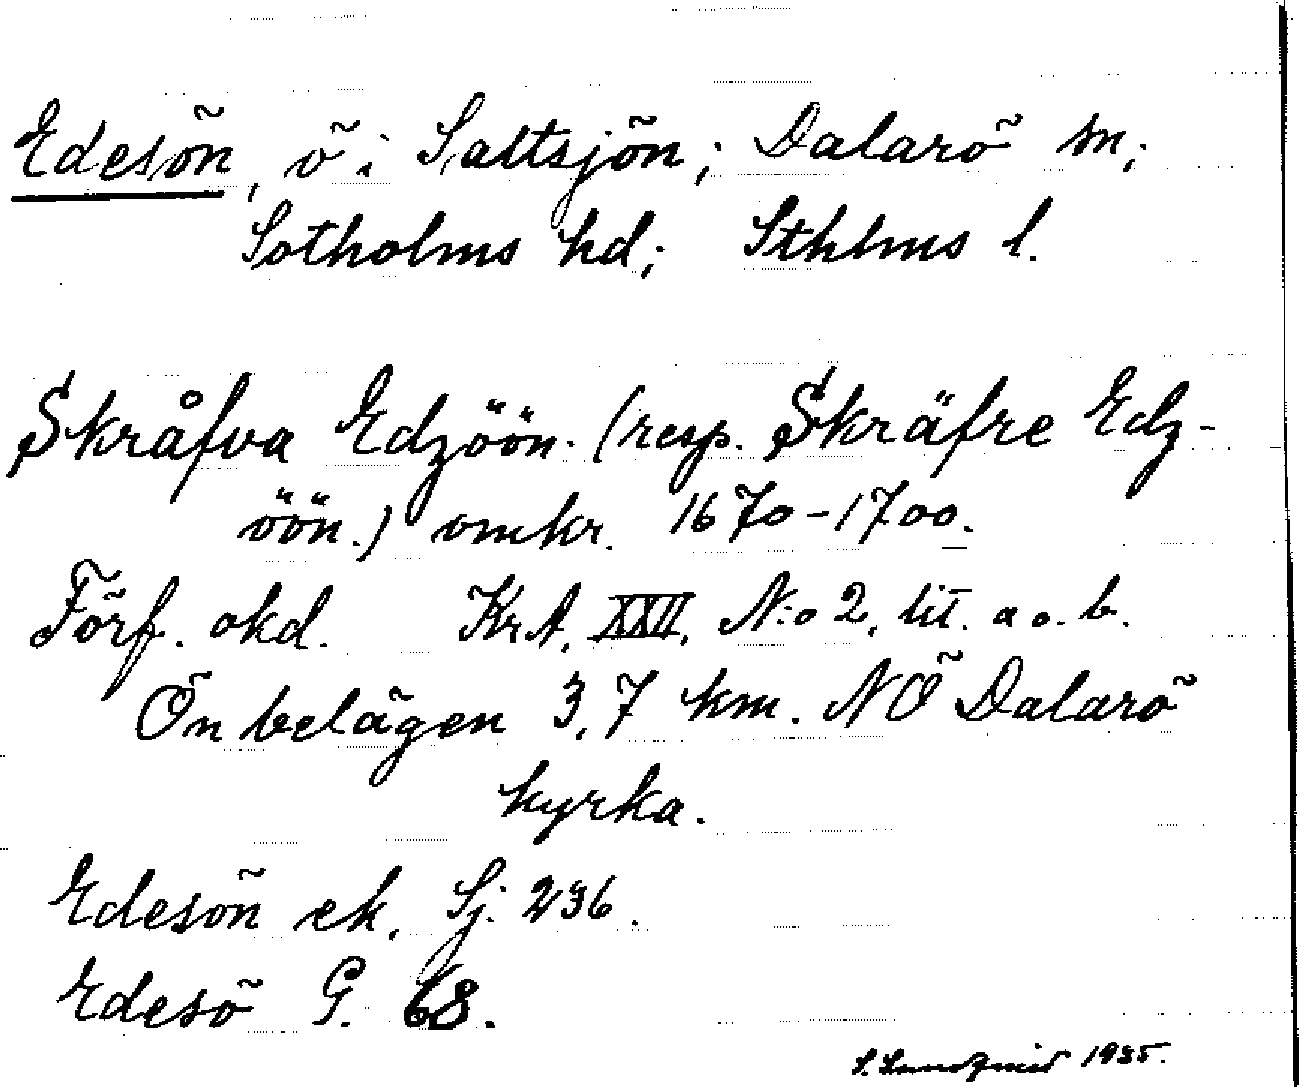 Edesön, ö i Saltsjön; Dalarö sn;
Sotholms hd; Sthlms l.
Skråfva Edzöön. (resp. Skräfre Edz-
öön.) omkr. 1670-1700.
Förf. okd. KrA. XXII, N:o 2, lit. a o. b.
Ön belägen 3,7 km. NÖ Dalarö
kyrka.
Edesön ek. Sj. 236.
Edesö G. 68.
S. Lundqvist 1935.